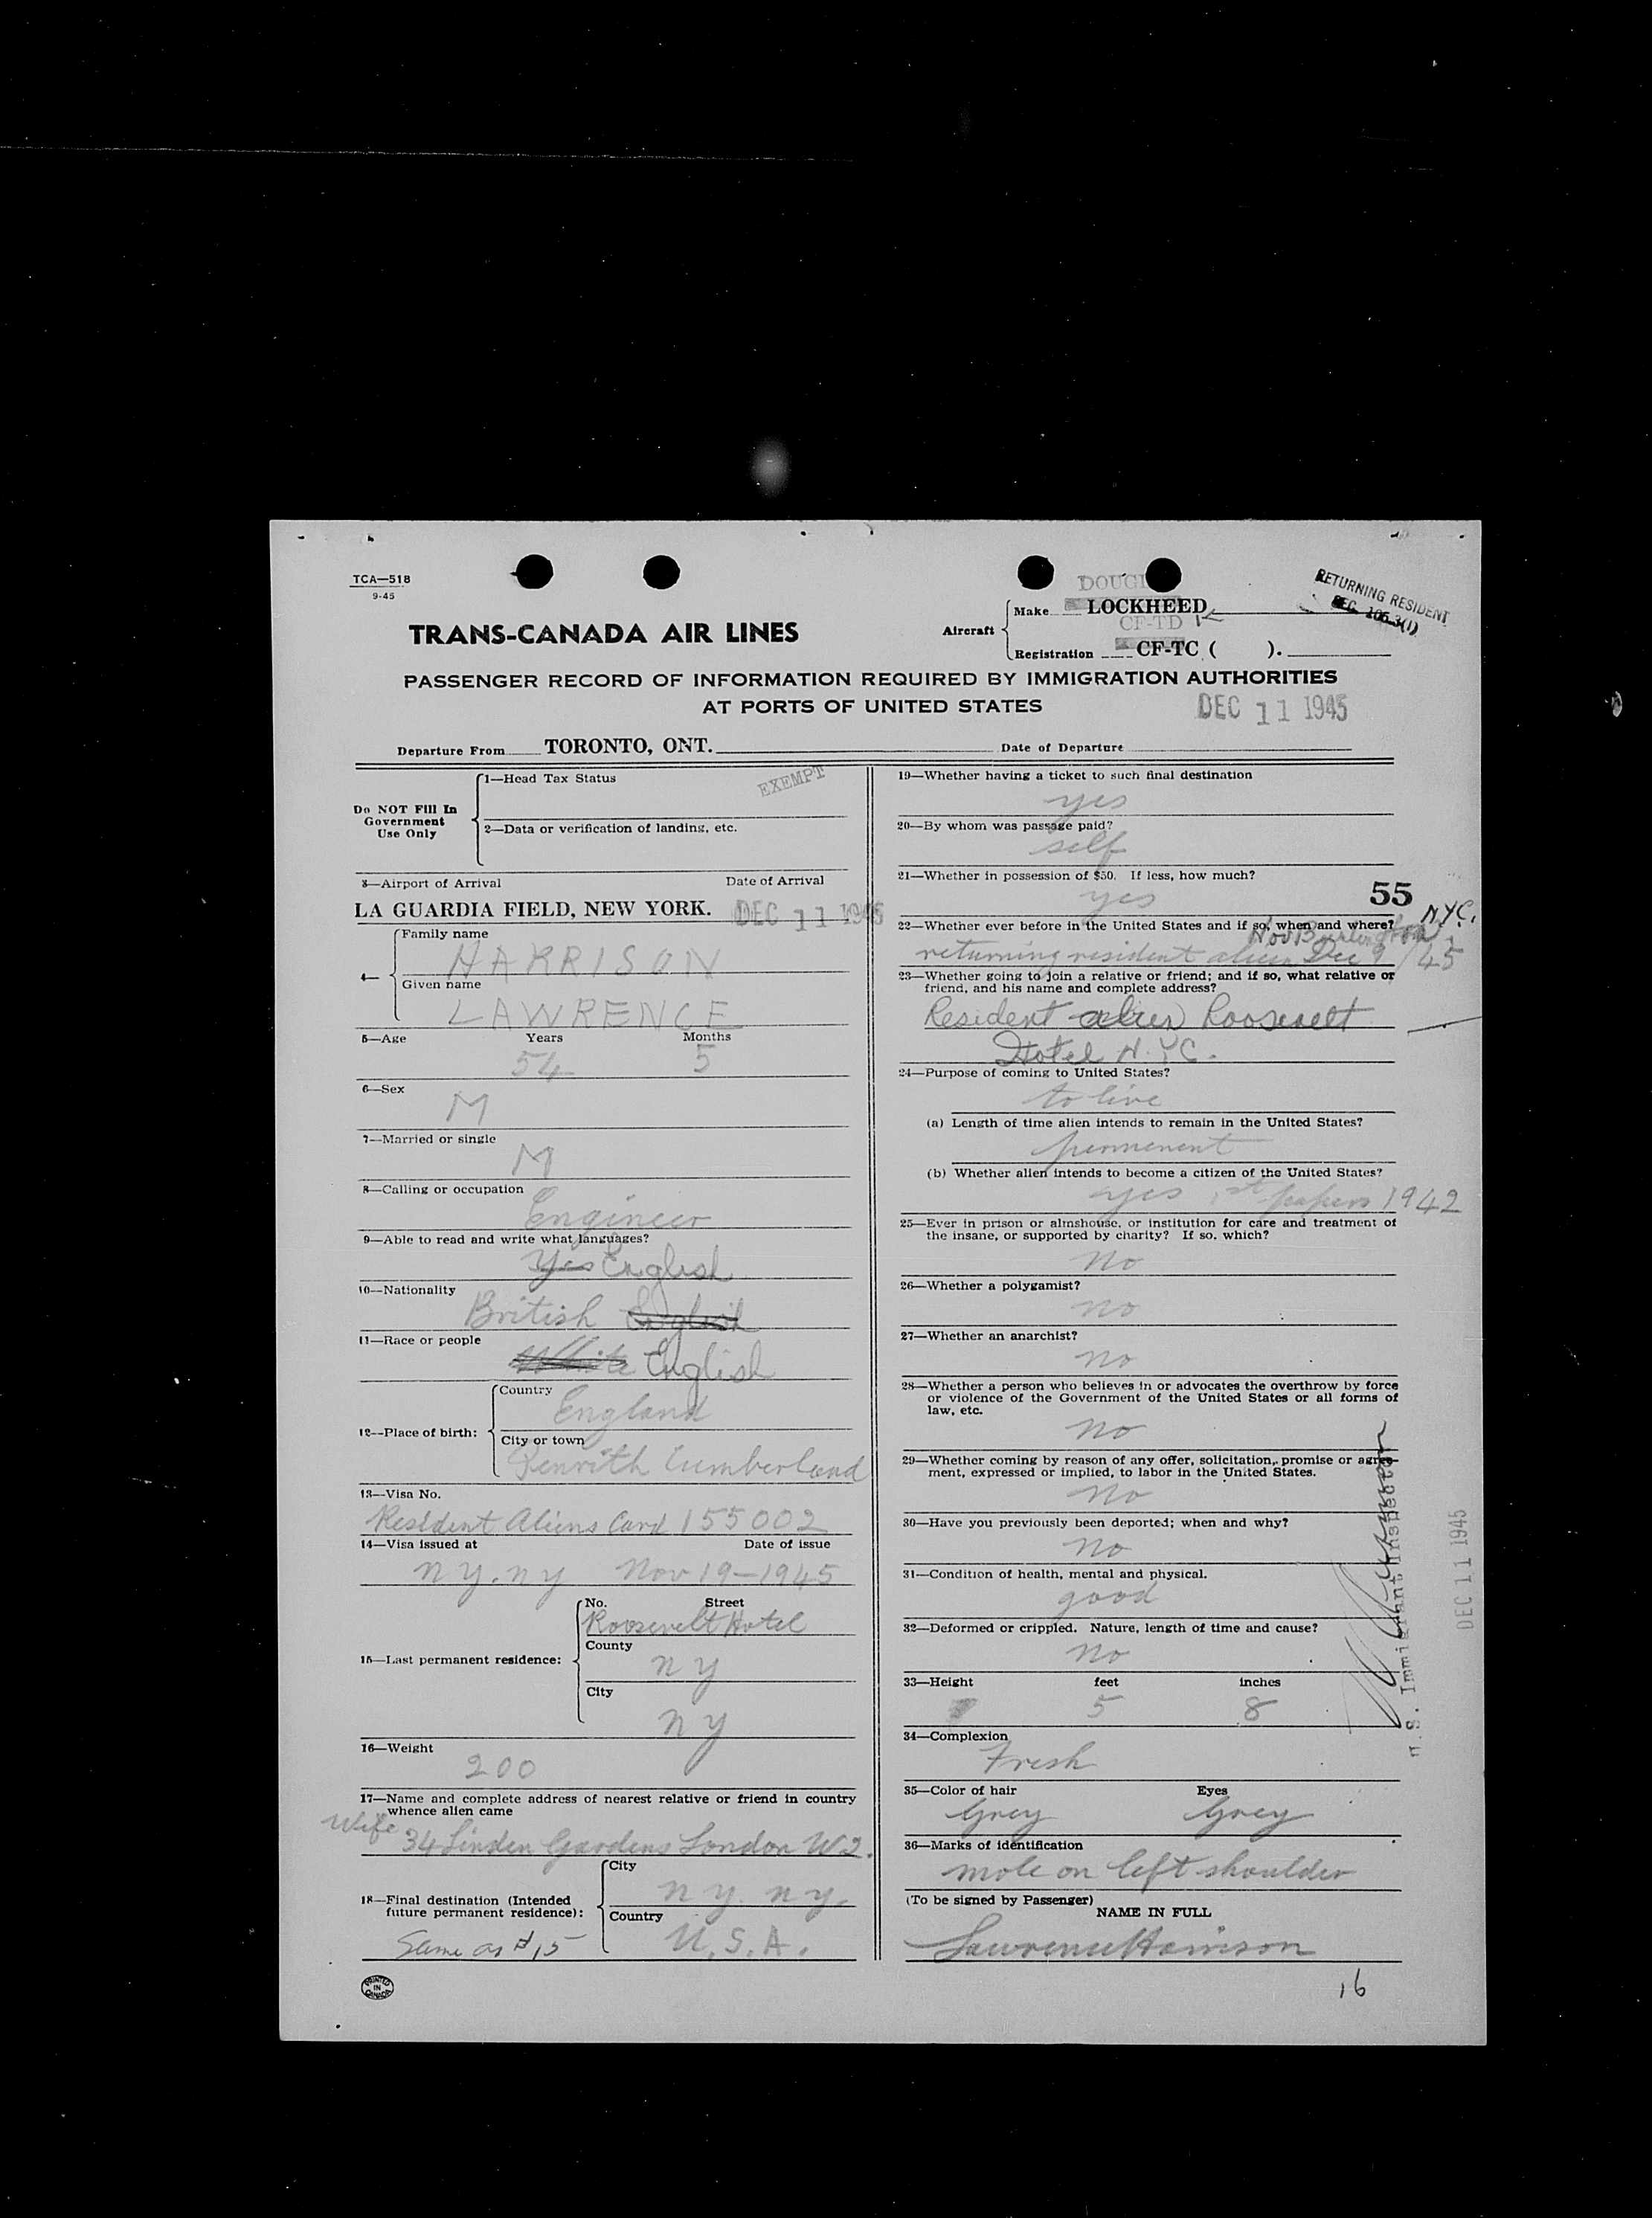 TCA—518
9-45
RETURNING RESIDENT
TRANS-CANADA AIR LINES
Aircraft
Make LOCKHEED
CF-TD 12
Registration CF-TC ( ).
PASSENGER RECORD OF INFORMATION REQUIRED BY IMMIGRATION AUTHORITIES
AT PORTS OF UNITED STATES
DEC 11 1945
Departure From TORONTO, ONT. Date of Departure
Do NOT Fill In Government Use Only
1—Head Tax Status EXEMPT
2—Data or verification of landing, etc.
3—Airport of Arrival Date of Arrival
LA GUARDIA FIELD, NEW YORK. DEC 11 1945
4—
Family name
HARRISON
Given name
LAWRENCE
5—Age Years Months
54 5
6—Sex
M
7—Married or single
M
8—Calling or occupation
Engineer
9—Able to read and write what languages?
Yes English
10—Nationality
British English
11—Race or people
White English
12—Place of birth:
Country
England
City or town
Penrith Cumberland
13—Visa No.
Resident Aliens Card 155002
14—Visa issued at Date of issue
n y. n y Nov 19—1945
15—Last permanent residence:
No. Street
Roosevelt Hotel
County
n y
City
n y
16—Weight
200
17—Name and complete address of nearest relative or friend in country
whence alien came
Wife
34 Linden Gardens London W2.
18—Final destination (Intended
future permanent residence):
Same as #15
City
n y. n y.
Country
U.S.A.
19—Whether having a ticket to such final destination
yes
20—By whom was passage paid?
self
21—Whether in possession of $50. If less, how much?
yes
55
22—Whether ever before in the United States and if so, when and where?
N.Y.C.
returning resident alien Dec 9/45
23—Whether going to join a relative or friend; and if so, what relative or
friend, and his name and complete address?
Resident alien Roosevelt
Hotel N.Y.C.
24—Purpose of coming to United States?
to live
(a) Length of time alien intends to remain in the United States?
permenent
(b) Whether alien intends to become a citizen of the United States?
yes 1st papers 1942
25—Ever in prison or almshouse, or institution for care and treatment of
the insane, or supported by charity? If so, which?
no
26—Whether a polygamist?
no
27—Whether an anarchist?
no
28—Whether a person who believes in or advocates the overthrow by force
or violence of the Government of the United States or all forms of
law, etc.
no
29—Whether coming by reason of any offer, solicitation, promise or agree-
ment, expressed or implied, to labor in the United States.
no
30—Have you previously been deported; when and why?
no
31—Condition of health, mental and physical.
good
32—Deformed or crippled. Nature, length of time and cause?
no
33—Height feet inches
5 8
34—Complexion
Fresh
35—Color of hair Eyes
Grey Grey
36—Marks of identification
mole on left shoulder
(To be signed by Passenger)
NAME IN FULL
Lawrence Harrison
U.S. Immigrant Inspector
DEC 11 1945
16
PRINTED IN CANADA